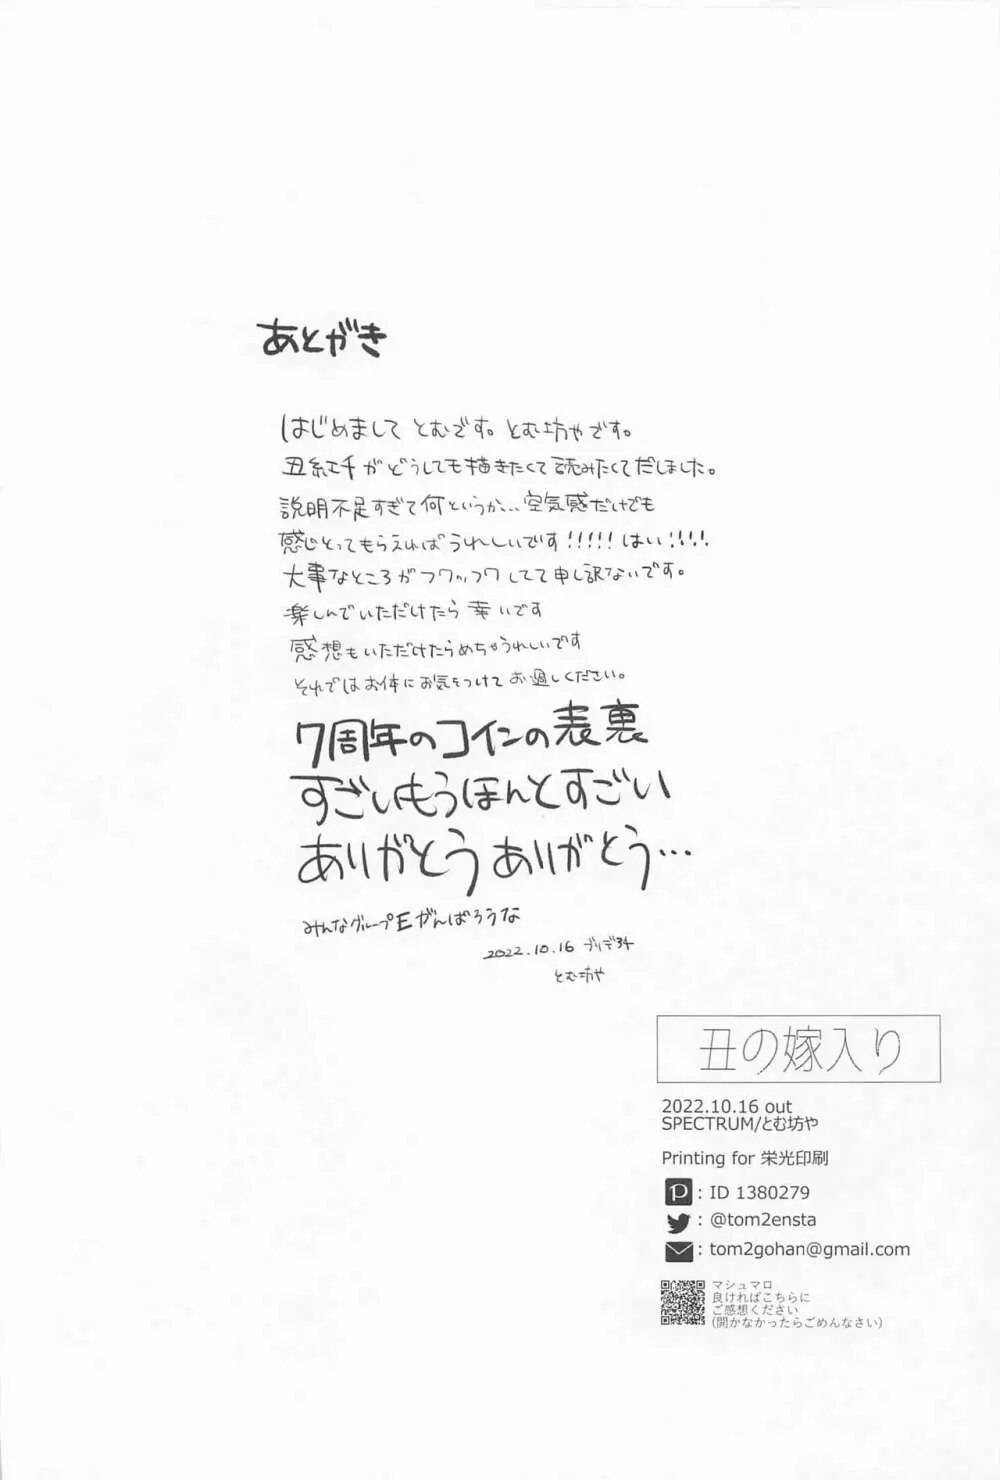 あとがき
はじめまして とむです。とむ坊やです。
丑紅千がどうしても描きたくて読みたくてだしました。
説明不足すぎて何というか…空気感だけでも
感じとってもらえればうれしいです!!!!! はい!!!!
大事なところがフワッフワしてて申し訳ないです。
楽しんでいただけたら幸いです
感想もいただけたらめちゃうれしいです
それではお体にお気をつけてお過しください。
7周年のコインの表裏
すごいもうほんとすごい
ありがとうありがとう…
みんなグループEがんばろうな
2022.10.16 ブリデ34
とむ坊や
丑の嫁入り
2022.10.16 out
SPECTRUM/とむ坊や
Printing for 栄光印刷
P : ID 1380279
: @tom2ensta
: tom2gohan@gmail.com
マシュマロ
良ければこちらに
ご感想ください
(開かなかったらごめんなさい)